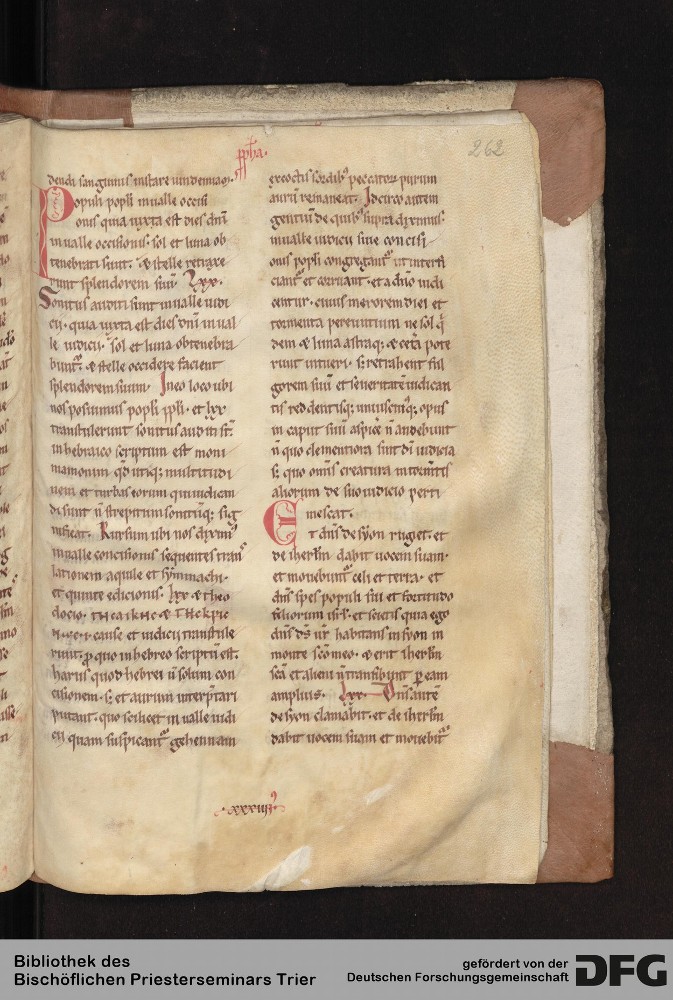 pph̄a.
262
denda sanguinis instare vindemiam.
Populi popłi in ualle occisi
onis quia iuxta est dies dn̄i
in ualle occisionis. sol et luna ob
tenebrati sunt. & stelle retraxe
runt splendorem suū. lxx.
Sonitus auditi sunt in ualle iudi
cii. quia iuxta est dies dn̄i in ual
le iudicii. sol et luna obtenebra
bunt᷑. & stelle occidere facient
splendorem suum. In eo loco ubi
nos posuimus popłi ppłi. et lxx
transtulerunt sonitus auditi st̄.
in hebraico scriptum est
mamonim qd̄ utiq; multitudi
nem et turbas eorum qui iudican
di sunt n̄ strepitum sonitūq; sig
nificat. Rursum ubi nos diximꝰ
in ualle concisionis sequentes trans
lationem aquile et symmachi.
et quinte edicionis. lxx & theo
docio.
cause et iudicii transtule
runt. ꝓ quo in hebreo scriptū est.
harus quod hebrei n̄ solum con
cisionem. s; et aurum interp̄tari
putant. quo scilicet in ualle iudi
cii quam suspicant᷑ gehennam
excoctis sordibꝰ peccatorꝝ purum
aurū remaneat. Idcirco autem
gentiū de quibꝰ supra diximus.
in ualle iudicii siue concisi
onis popłi congregant᷑ ut interfi
ciant᷑ et corruant. et a dn̄o iudi
centur. cuius merorem diei et
tormenta pereuntium ne sol q̄
dem & luna astraq; & cet̄a pote
runt intueri. s; retrahent ful
gorem suū et seueritatē iudican
tis reddentisq; unicuiq; opus
in caput suū aspice n̄ audebunt
n̄ quo clementiora sint dī iudicia
s; quo omīs creatura in tormētis
aliorum de suo iudicio perti
mescat.
Et dn̄s de syon rugiet. et
de iherłm dabit uocem suam.
et mouebunt᷑ celi et terra. et
dn̄s spes populi sui et fortitudo
filiorum isrł. et scietis quia ego
dn̄s ds̄ ur̄ habitans in syon in
monte sc̄o meo. & erit iherłm
sc̄a et alieni n̄ transibunt ꝑ eam
amplius. lxx. Dn̄s autē
de syon clamabit. et de iherłm
dabit uocem suam et mouebūt᷑
.xxxiiiꝰ.
Bibliothek des
Bischöflichen Priesterseminars Trier
gefördert von der
Deutschen Forschungsgemeinschaft
DFG